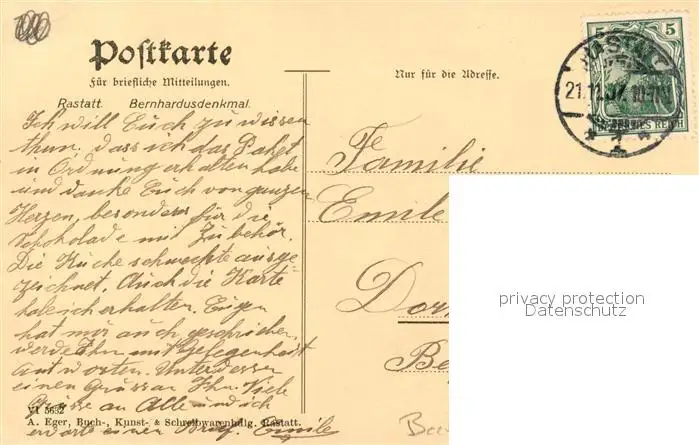 Postkarte
Für briefliche Mitteilungen.
Nur für die Adresse.
Rastatt. Bernhardusdenkmal.
Ich will Euch zu wissen
thun, dass ich das Paket
in Ordnung erhalten habe
und danke Euch von ganzem
Herzen, besonders für die
Schokolade mit Zubehör.
Die Kuche schmeckte ausge
zeichnet. Auch die Karte
habe ich erhalten. Eugen
hat mir auch geschrieben,
werde Ihm mit Gelegenheit
antworten. Unterdessen
einen Gruss an Ihn. Viele
Grüsse an Alle und ich
erwarte einen Brief. Emile
VI 5632
A. Eger, Buch-, Kunst- & Schreibwarenhdlg. Rastatt.
Familie
Emile
Dor
Be
5 5
DEUTSCHES REICH
RASTATT
21.11.07. 10-11
privacy protection
Datenschutz